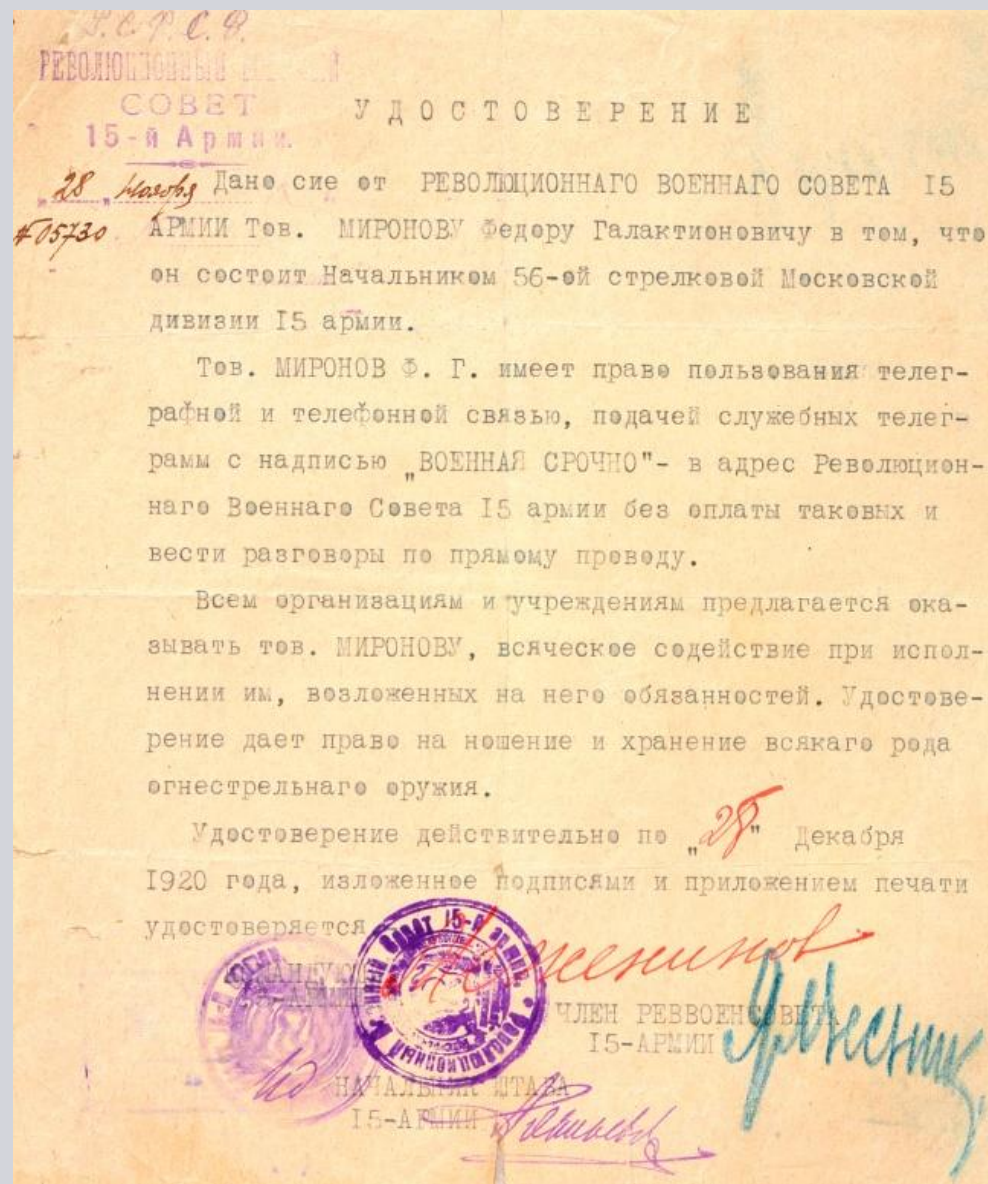 Р.С.Ф.С.Р.
РЕВОЛЮЦИОННЫЙ
СОВЕТ
15-й Армии.
УДОСТОВЕРЕНИЕ
„28„ Ноября
№05730
Дано сие от РЕВОЛЮЦИОННАГО ВОЕННАГО СОВЕТА I5
АРМИИ Тов. МИРОНОВУ Федору Галактионовичу в том, что
он состоит Начальником 56-ой стрелковой Московской
дивизии I5 армии.
Тов. МИРОНОВ Ф. Г. имеет право пользования телег-
рафной и телефонной связью, подачей служебных телег-
рамм с надписью „ВОЕННАЯ СРОЧНО"- в адрес Революцион-
наго Военнаго Совета I5 армии без оплаты таковых и
вести разговоры по прямому проводу.
Всем организациям и учреждениям предлагается ока-
зывать тов. МИРОНОВУ, всяческое содействие при испол-
нении им, возложенных на него обязанностей. Удостове-
рение дает право на ношение и хранение всякаго рода
огнестрельнаго оружия.
Удостоверение действительно по „28" Декабря
I920 года, изложенное подписями и приложением печати
удостоверяется
Революционный Военный Совет 15-й армии.
ЧЛЕН РЕВВОЕНСОВЕТА
I5-АРМИИ
НАЧАЛЬНИК ШТАБА
I5-АРМИИ